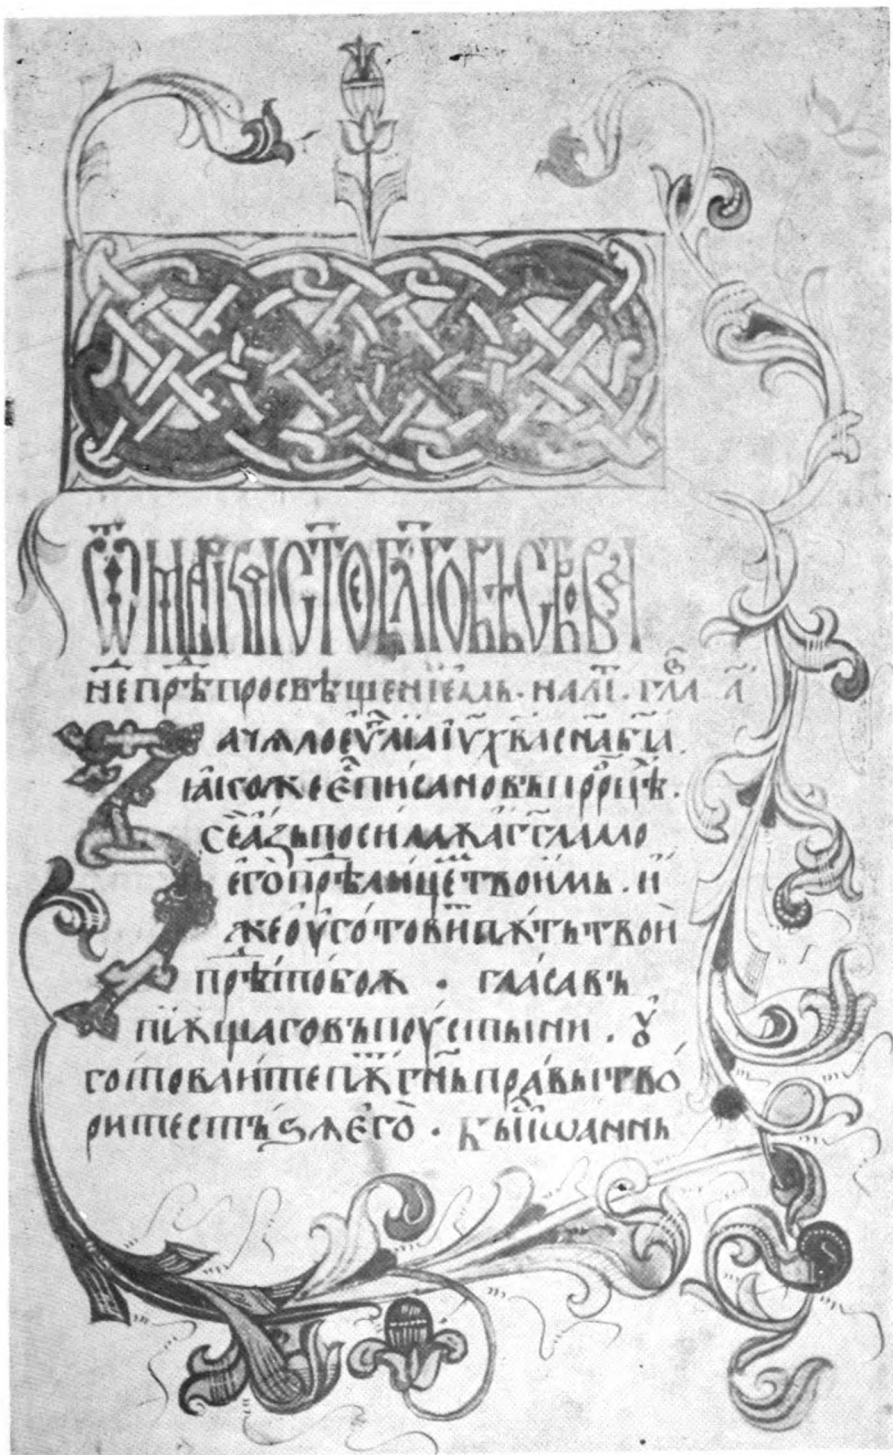 ѿ мар́ка ст҃ое бл҃гов
не прѣ просвѣщенїемь · гла а҃
Зачѧло еѵⷢ҇лїа іѵ҃ х҃ва сн҃а бж҃їа ·
ꙗкоже еⷭ҇ писано въ прⷪ҇рцѣⷯ ·
се азь посилаѫ агг҃ла мо
его прѣⷣ лицеⷨ҇ твоимь · и
же оуготовиⷮ пѫть твои
прѣⷣ тобоѫ · гласа въ
пїѫщаго въ поусты̀ни · ꙋ
готоваите пѫⷮ гн҃ь правы тво
рите стъѕѧ его · бы іѡаннь